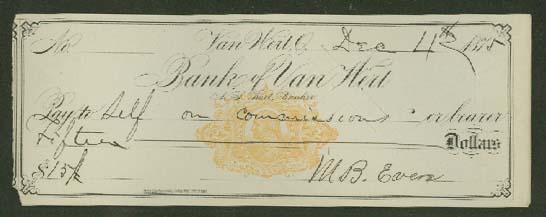 No Van Wert, O. Dec 11th 1875
Bank of Van Wert
Banker
Pay to Self on commissions or bearer
Fifteen Dollars
$15
M B. Evers